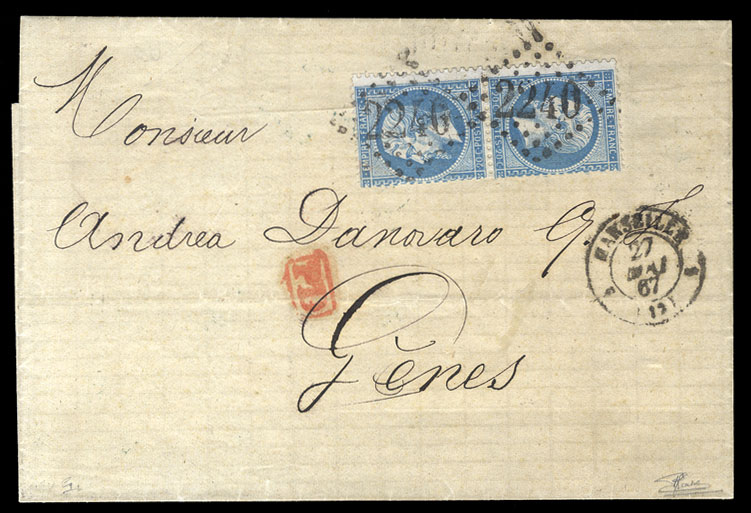 Monsieur
2240 2240
EMPIRE FRANC
Andrea Danovaro Q. F.
MARSEILLE
27
MAI
67
(12)
P.D.
Gênes